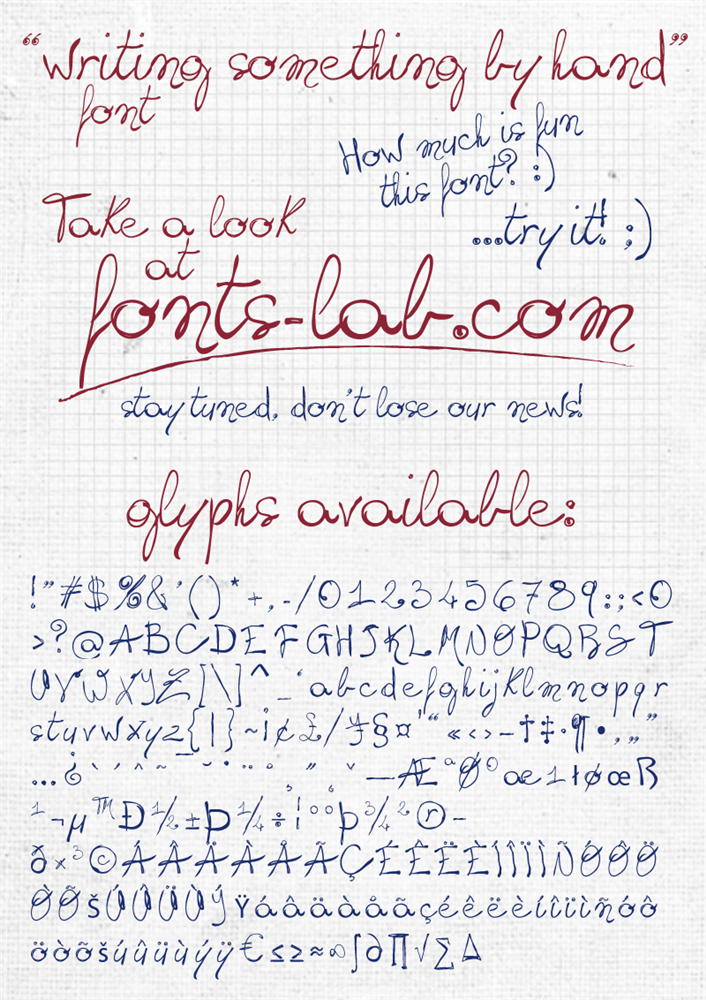 “writing something by hand”
font
How much is fun
this font? :)
Take a look
...try it! ;)
at
fonts-lab.com
stay tuned, don't lose our news!
glyphs available:
!"#$%&'()*+,-/0123456789:;<0
>?@ABCDEFGHJKLMNOPQRST
UVWXYZ[\]^_`abcdefghijklmnopqr
stuvwxyz{|}~¡¢£/¥§¤'“«‹›–†‡·¶•‚„”
…¿`´ˆ˜¯˘˙¨˚¸˝˛ˇ—ƪØºæ1łøœß
¹¬µ™Ð½±Þ¼÷¦°°þ¾²®-
ð×³©ÁÂÄÀÅÃÇÉÊËÈÍÎÏÌÑÓÔÖ
ÒÕšÚÛÜÙÝŸáâäàåãçéêëèíîïìñóô
öòõšúûüùýÿ€≤≥≈∞∫∂∏√∑∆